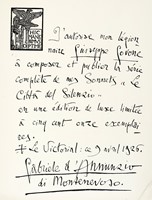 J'autorise mon légionnaire Giuseppe Govone
à composer et publier la série
complète de mes Sonnets de Le
Città del Silenzio.
en une édition de luxe limitée
à cinq cent onze exemplaires.
Le Vittoriale: ce 9 1926.
Gabriele d'Annunzio
di Montenevoso.